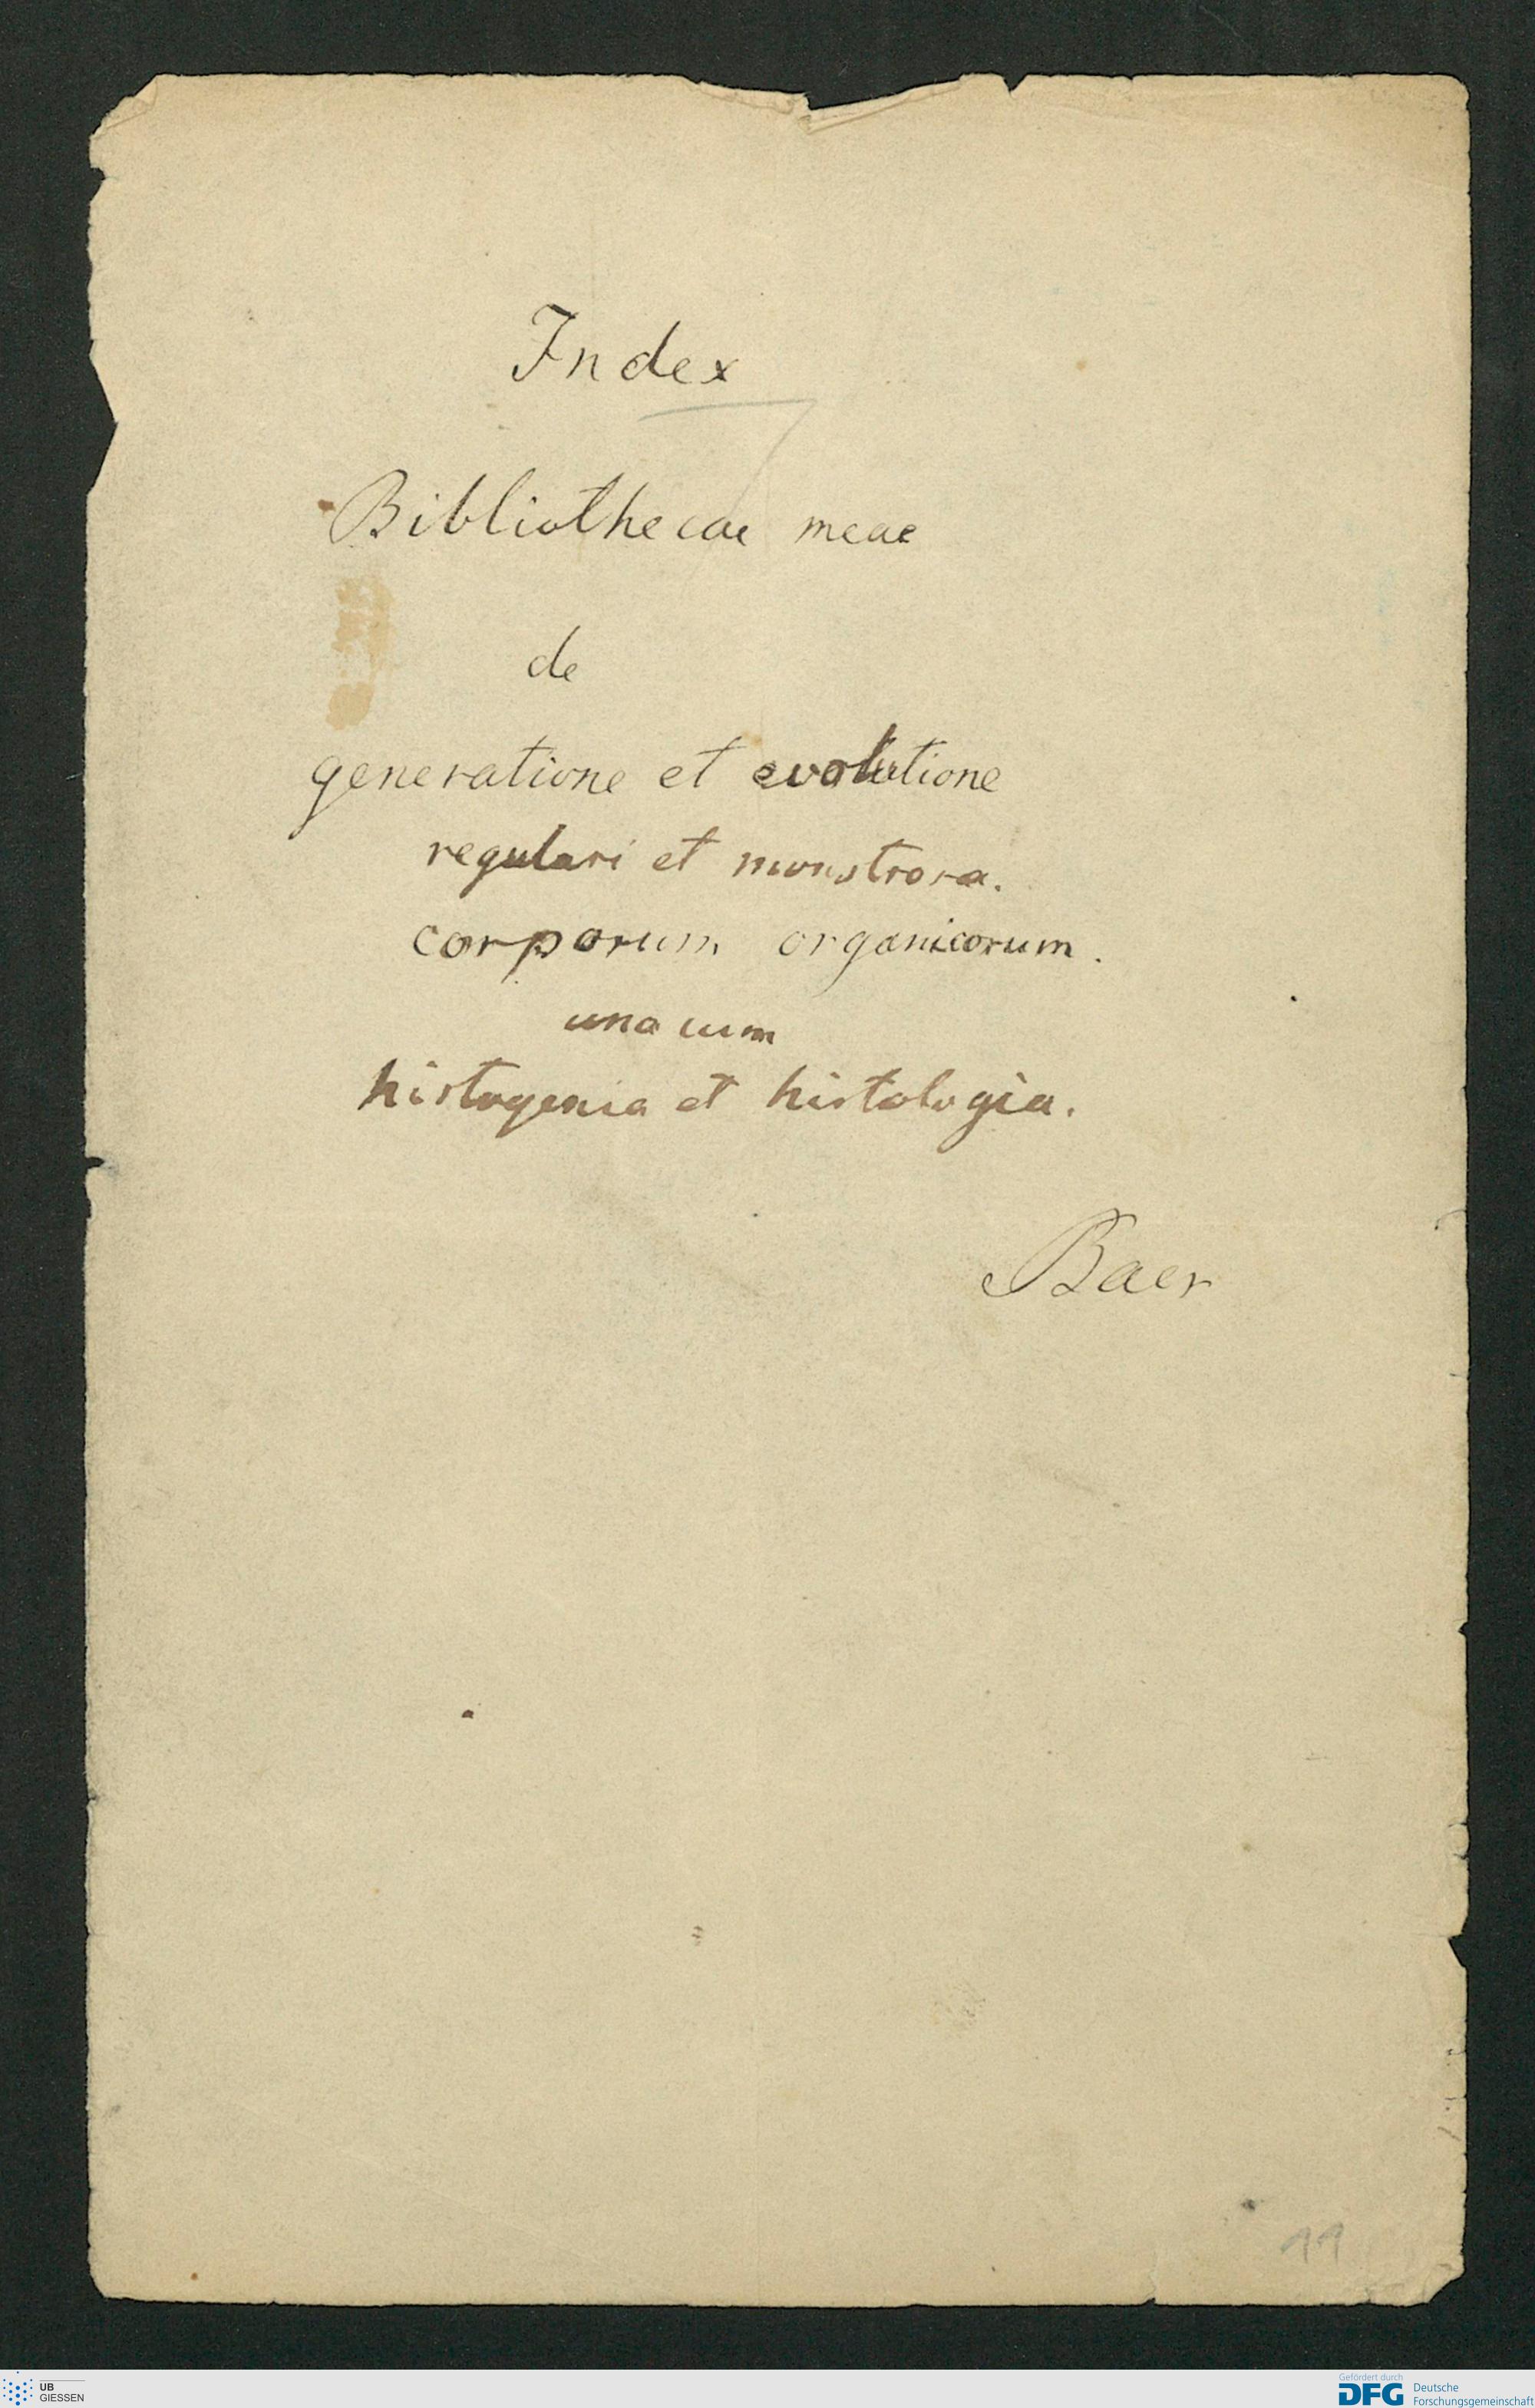 Index
Bibliothecae meae
de
generatione et evolutione
regulari et monstrosa.
corporum organicorum.
una cum
histogenia et histologia.
Baer
11
UB
GIESSEN
Gefördert durch
DFG Deutsche
Forschungsgemeinschaft